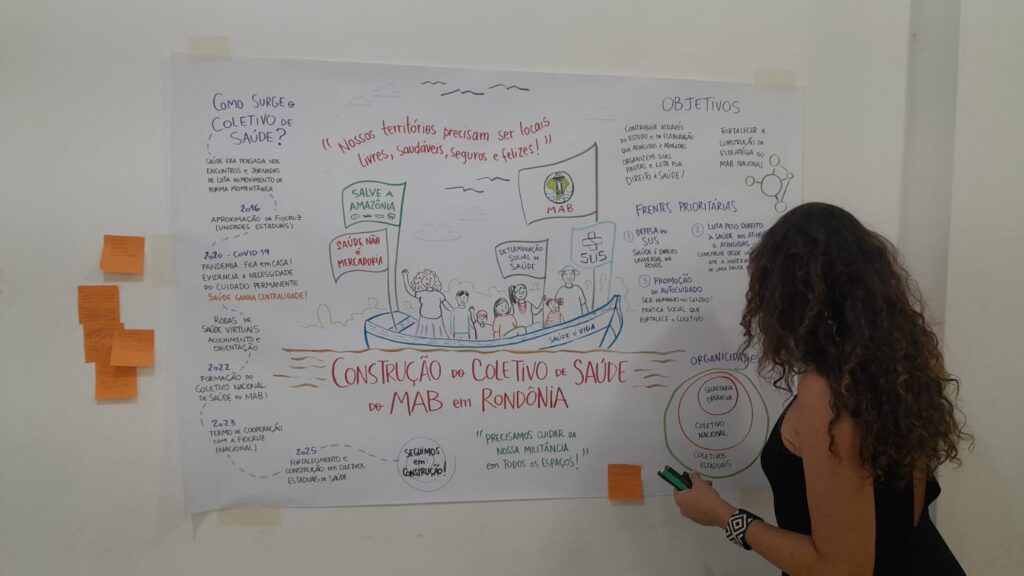 COMO SURGE O
COLETIVO DE
SAÚDE?
SAÚDE ERA PENSADA NOS
ENCONTROS E JORNADAS
DE LUTA DO MOVIMENTO DE
FORMA MOMENTÂNEA
2016
APROXIMAÇÃO DA FIOCRUZ
(UNIDADES ESTADUAIS)
2020 - COVID 19
PANDEMIA FICA EM CASA!
EVIDENCIA A NECESSIDADE
DO CUIDADO PERMANENTE
SAÚDE GANHA CENTRALIDADE!
RODAS DE
SAÚDE VIRTUAIS
ACOLHIMENTO E
ORIENTAÇÃO
2022
FORMAÇÃO DO
COLETIVO NACIONAL
DE SAÚDE DO MAB!
2023
TERMO DE COOPERAÇÃO
COM A FIOCRUZ
(NACIONAL)
2025
FORTALECIMENTO E
CONSTRUÇÃO DOS COLETIVOS
ESTADUAIS DE SAÚDE
SEGUIMOS
EM
CONSTRUÇÃO!
"Nossos territórios precisam ser locais
livres, saudáveis, seguros e felizes!"
SALVE A
AMAZÔNIA
SAÚDE NÃO
É
MERCADORIA
MAB
DETERMINAÇÃO
SOCIAL DA
SAÚDE
SUS
SAÚDE É VIDA
CONSTRUÇÃO DO COLETIVO DE SAÚDE
DO MAB EM RONDÔNIA
"PRECISAMOS CUIDAR DA
NOSSA MILITÂNCIA
EM TODOS OS ESPAÇOS!"
OBJETIVOS
CONTRIBUIR ATRAVÉS
DO ESTUDO E DA ELABORAÇÃO
QUE ATINGIDOS E ATINGIDAS
ORGANIZEM SUAS
PAUTAS E LUTA POR
DIREITO À SAÚDE!
FORTALECER A
CONSTRUÇÃO DA
ESTRATÉGIA DO
MAB NACIONAL
FRENTES PRIORITÁRIAS
1 DEFESA DO
SUS
SAÚDE É DIREITO
UNIVERSAL DOS
POVOS
2 LUTA PELO DIREITO
À SAÚDE DOS
E ATINGIDAS
CONSTRUIR DESDE
ATÉ A
DE UMA PAUTA
3 PROMOÇÃO
DO AUTOCUIDADO
SER HUMANO NO CENTRO!
PRÁTICA SOCIAL QUE
FORTALECE O COLETIVO
SECRETARIA
OPERATIVA
COLETIVO
NACIONAL
COLETIVOS
ESTADUAIS